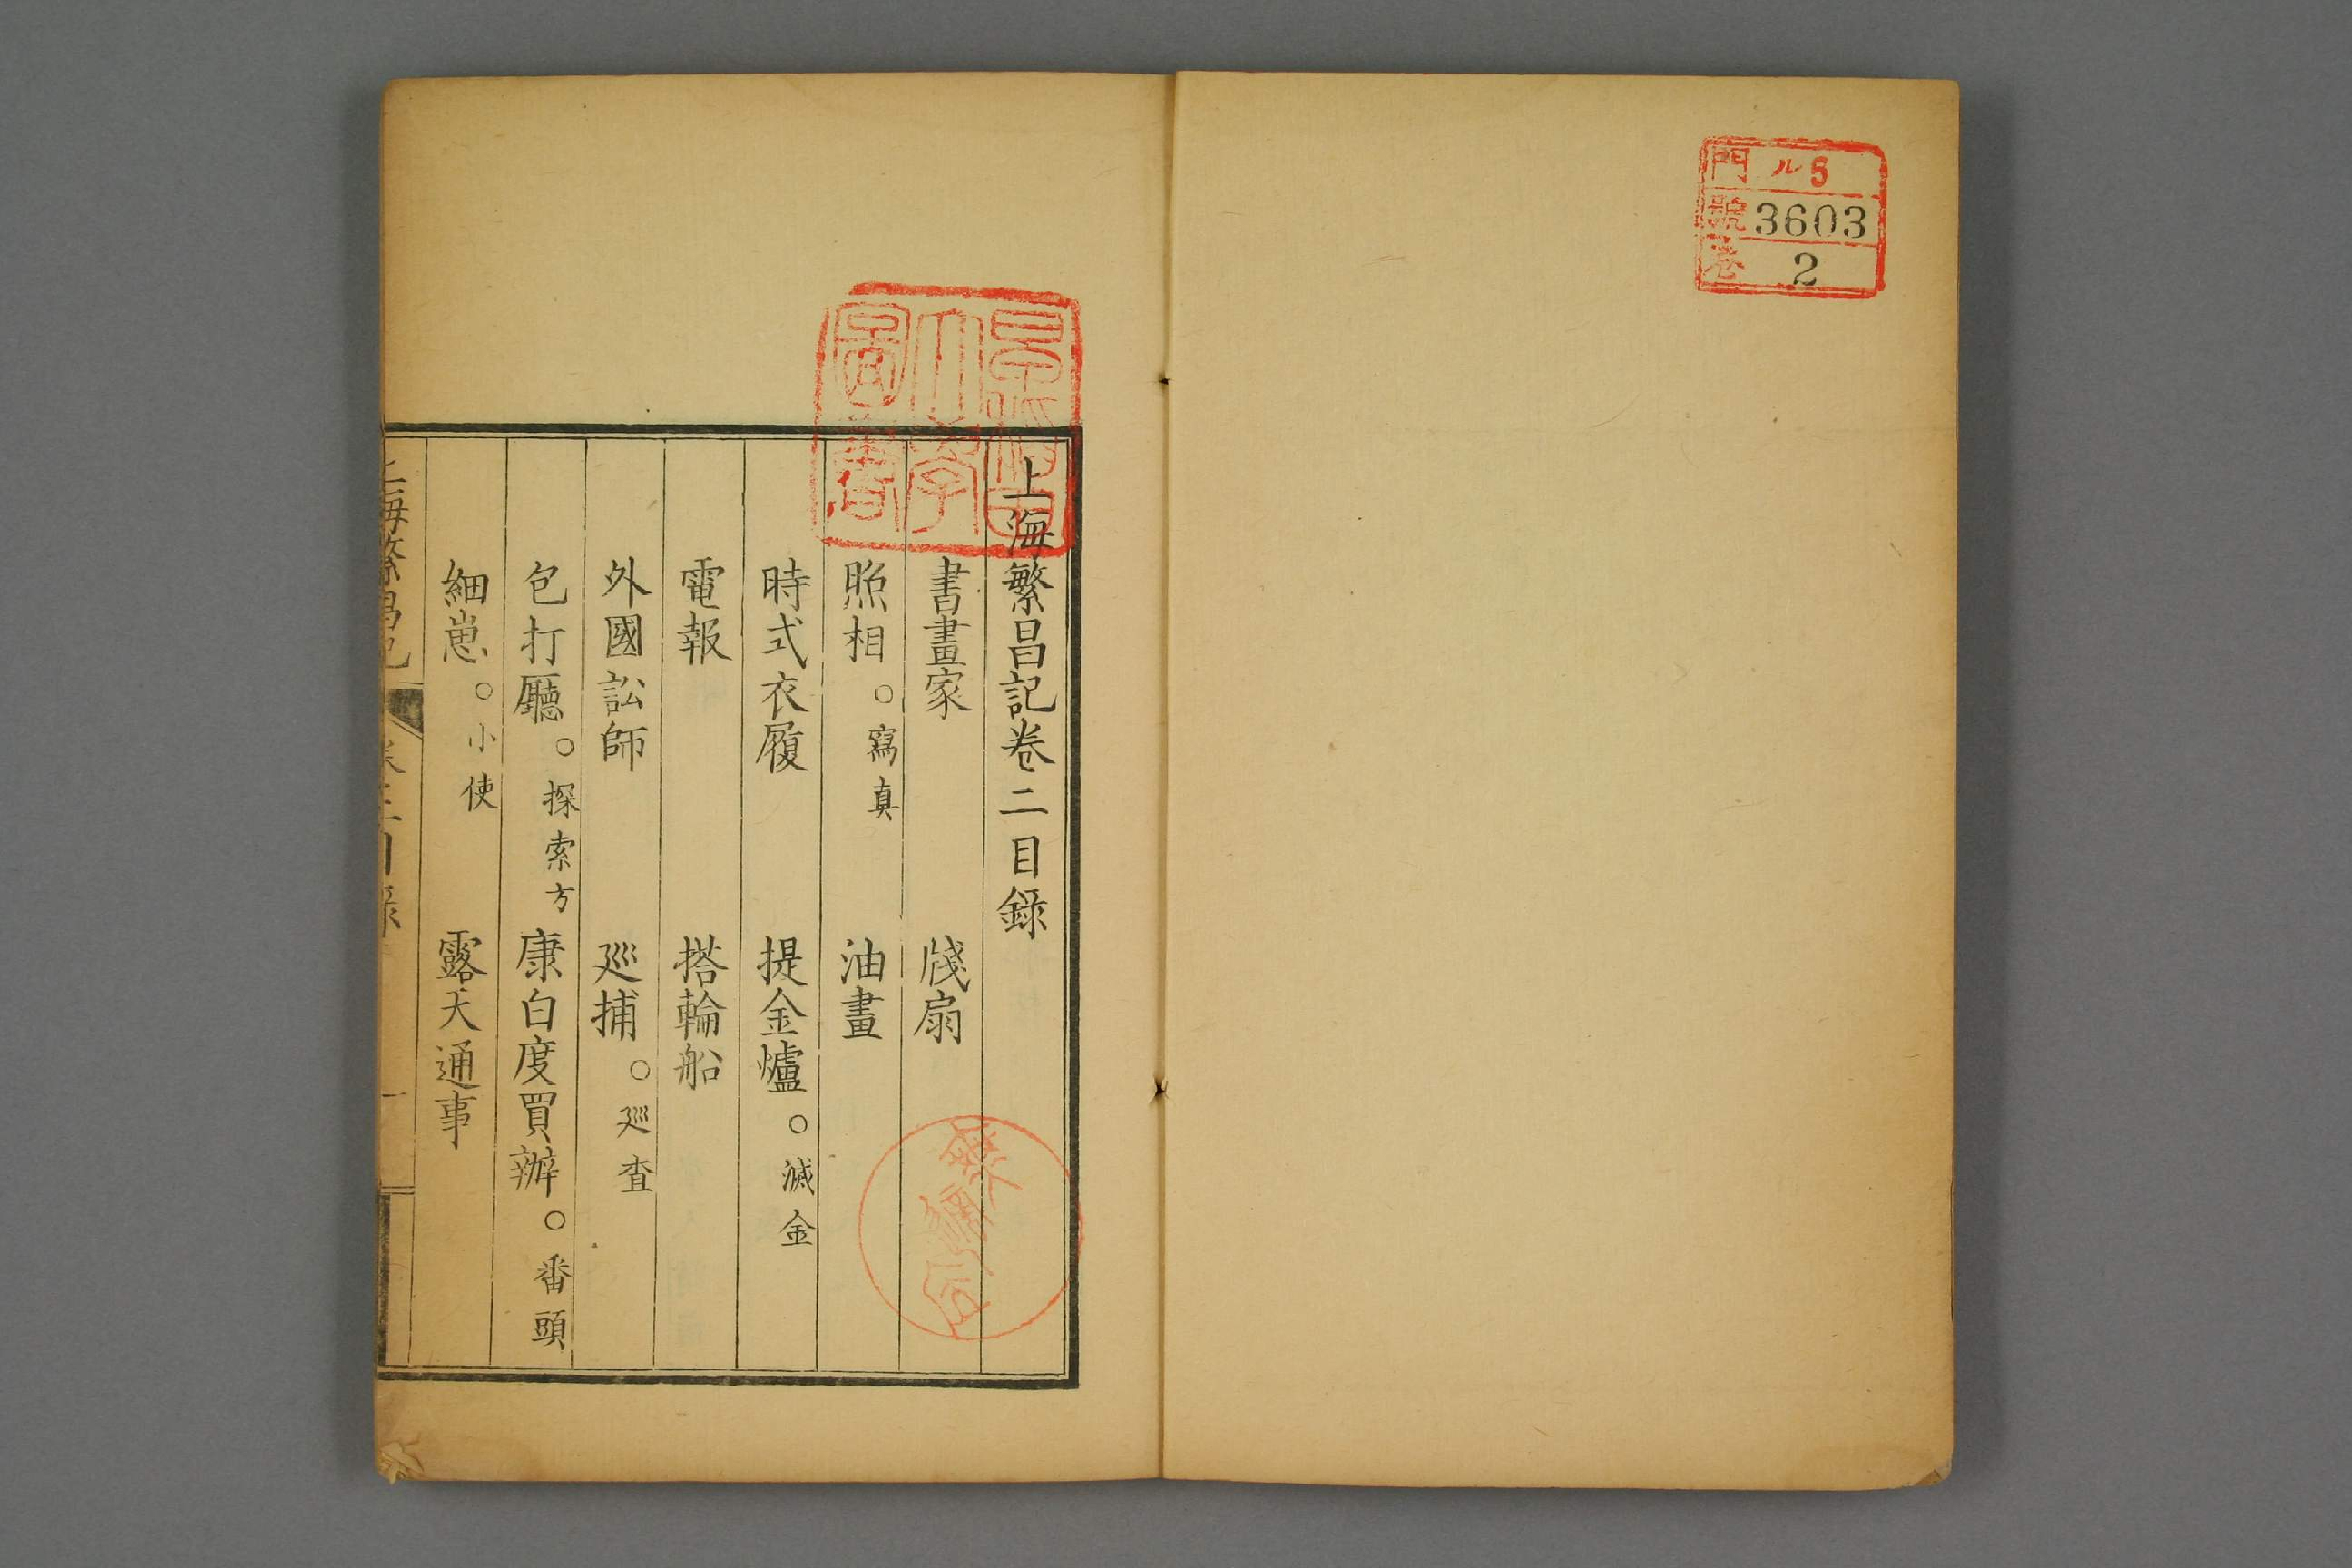 門 ル5
號 3603
卷 2
上海繁昌記卷二目錄
書畫家 牋扇
照相。寫真 油畫
時式衣履 提金爐。滅金
電報 搭輪船
外國訟師 巡捕。巡查
包打廳。探索方 康白度買辦。番頭
細崽。小使 露天通事
上海繁昌記 卷二目錄 一